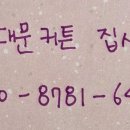 대문 커튼 집시
0-8781-64